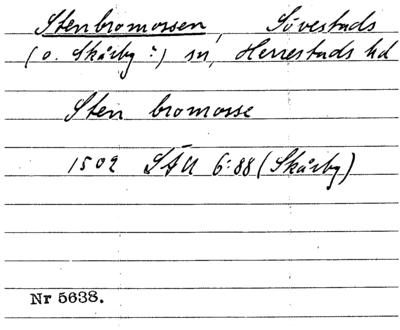 Stenbromossen, Sövestads
(o. Skårby?) sn, Herrestads hd
Sten bromosse
1502 SÄU 6:88 (Skårby)
Nr 5638.